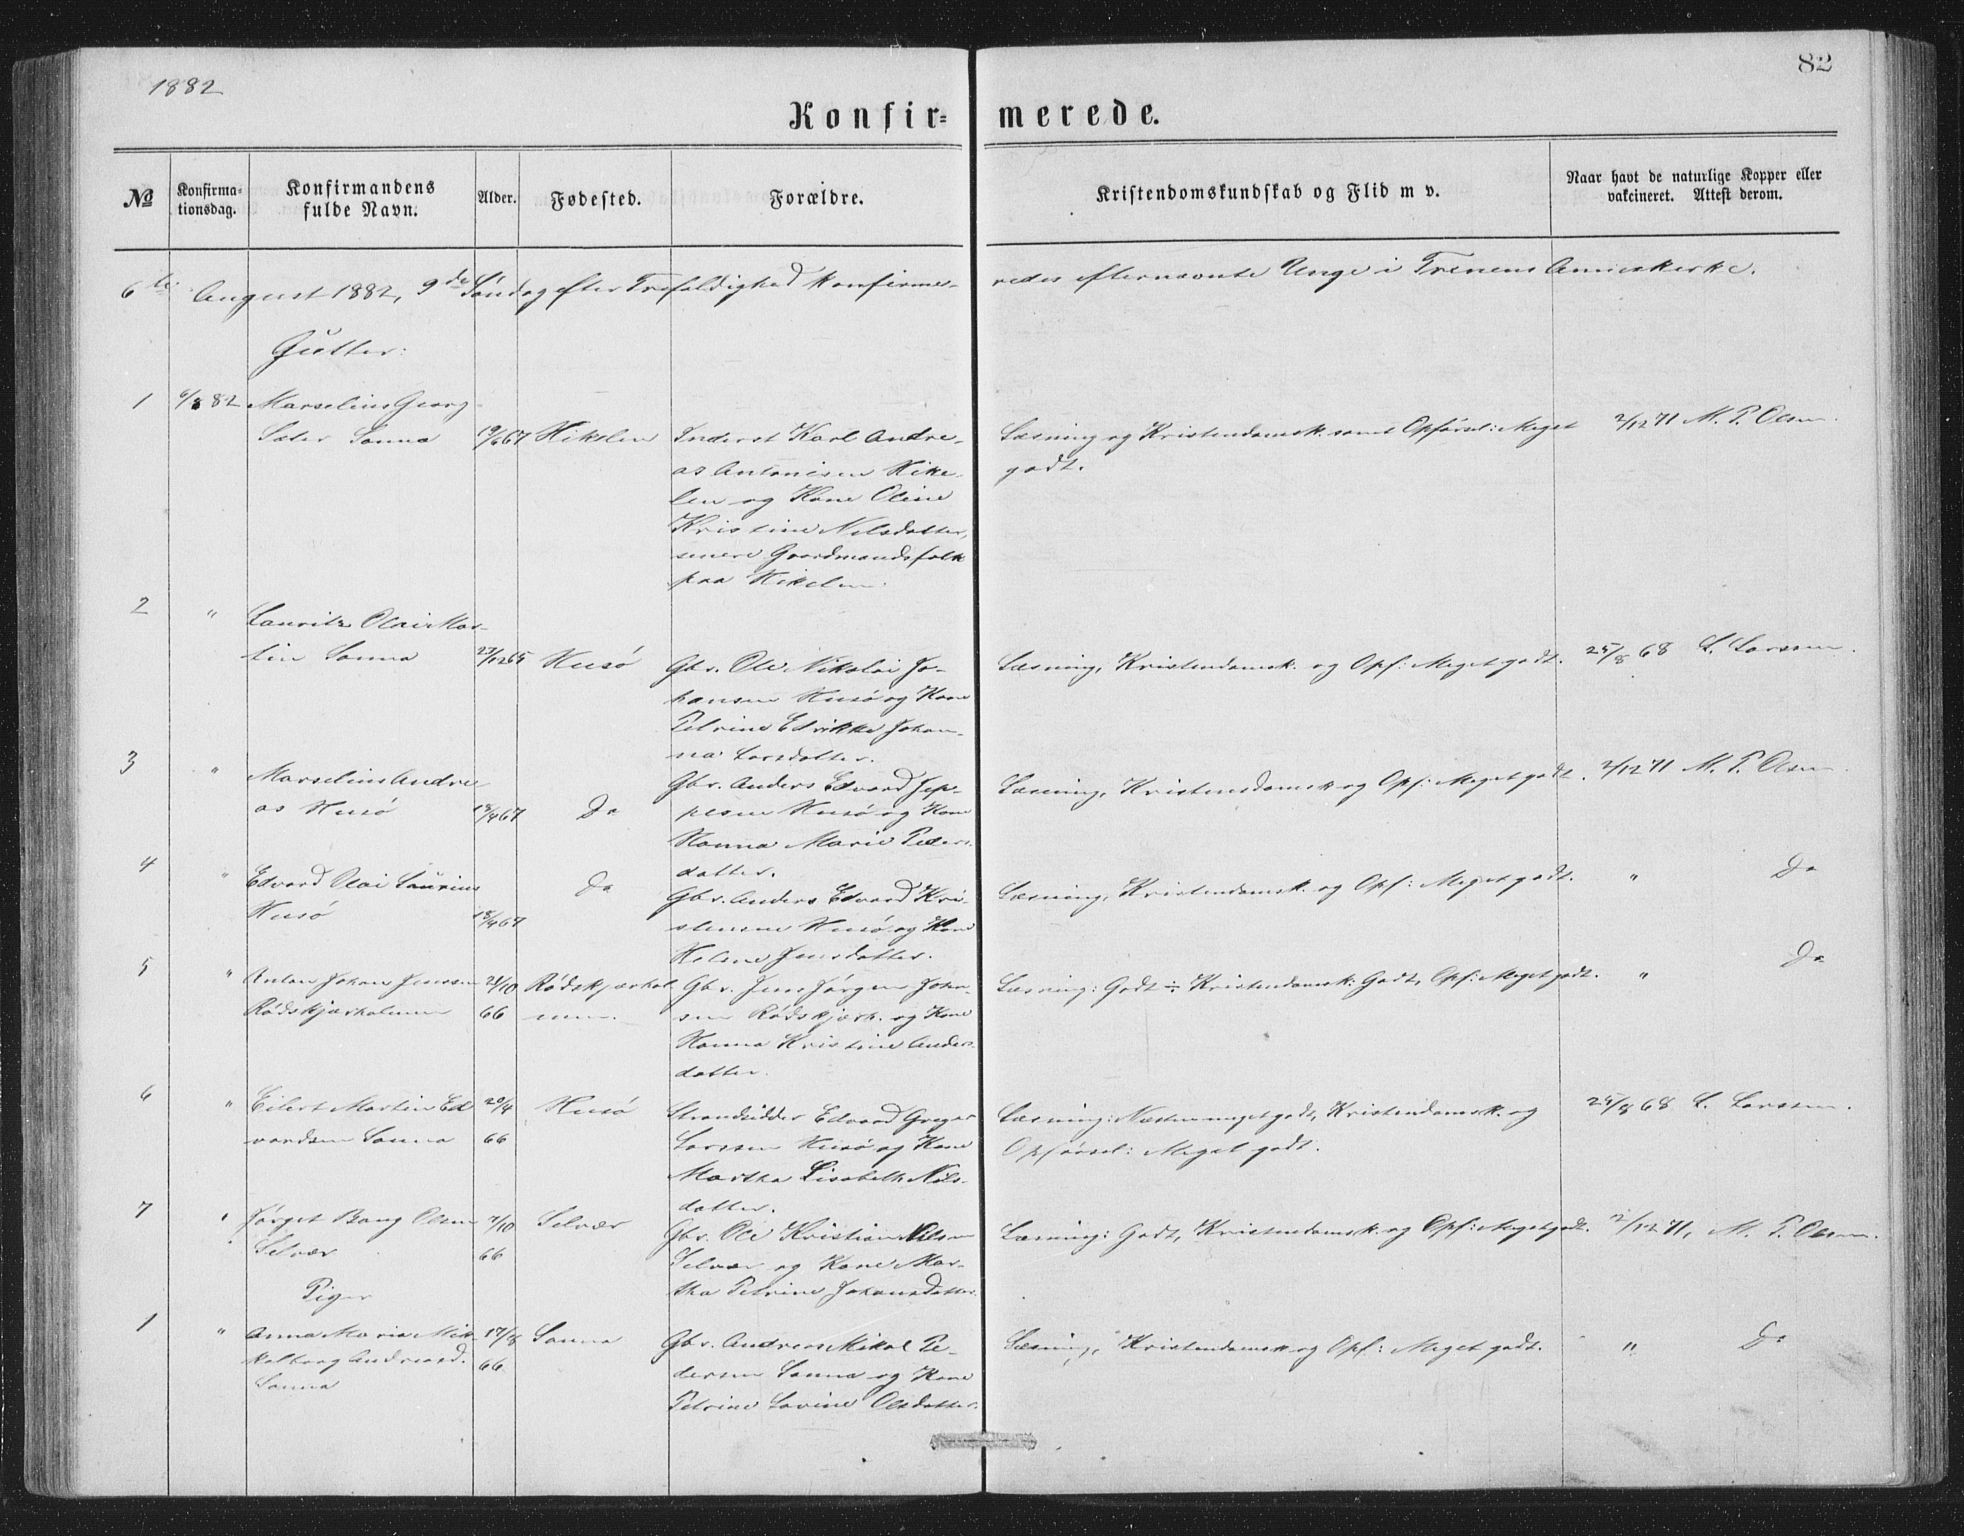 1882
82
Konfir= merede.
№
Konfirma-
tionsdag.
Konfirmandens
fulde Navn.
Alder.
Fødested.
Forældre.
Kristendomskundskab og Flid m v.
Naar havt de naturlige Kopper eller
vakcineret. Attest derom.
6te August 1882, 9de Søndag efter Trefoldighed konfirme- redes efternævnte Unge i Trenens Anneskirke.
Gutter:
1 6/8 82 Marselius Georg
Sanna 19/6 67 Hikelen Inderst Karl Andre-
as Antonisen Hike-
len og Kone Oline
Kristine Nilsdatter,
senere Gaardmandsfolk
paa Hikelen.
Læsning og Kristendomsk. samt Opførsel: Meget
godt.
2/12 71 M. P. Olsen
2 " Lauritz Olai Mar-
tin Sanna 27/12 65 Husø Gbr. Ole Nikolai Jo-
hansen Husø og Kone
Petrine Edrikke Johan-
na Larsdatter.
Læsning, Kristendomsk. og Opf: Meget godt.
25/8 68 L. Larssen.
3 " Marselius Andre
as Husø 18/4 67 Do Gbr. Anders Edvard Jep-
pesen Husø og Kone
Hanna Marie Peders-
datter.
Læsning, Kristendomsk og Opf: Meget godt.
2/12 71 M. P. Olsen
4 " Edvard Olai Laurius
Husø 18/4 67 Do Gbr. Anders Edvard Kri-
stensen Husø og Kone
Helene Jensdatter.
Læsning, Kristendomsk. og Opf: Meget godt.
" Do
5 " Anton Johan Jenssen
Rødskjærholmen 24/10
66
Rødskjærhol
men.
Gbr. Jens Jørgen John-
sen Rødskjærh. og Kone
Hanna Kristine Anders-
datter.
Læsning: Godt ÷ Kristendomsk: Godt, Opf: Meget godt.
" Do
6 " Eilert Martin Ed
vardsen Sanna 20/4
66
Husø
Strandsidder Edvard Greger
Larssen Husø og Kone
Martha Lisabeth Nils-
datter.
Læsning: Næsten meget godt, Kristendomsk. og
Opførsel: Meget godt.
25/8 68 L. Larssen.
7 " Jørget Bang Olsen
Selvær 7/10
66
Selvær
Gbr. Ole Kristian Nilsen
Selvær og Kone Mar-
tha Petrine Johansdatter.
Læsning: Godt, Kristendomsk. og Opf: Meget godt.
2/12 71, M. P. Olsen.
Piger
1 " Anna Maria Mik
kalborg Andreasd.
Sanna 17/8
66
Sanna
Gbr. Andreas Mikal Pe-
dersen Sanna og Kone
Petrine Lovine Olsdatter.
Læsning, Kristendomsk og Opf: Meget godt.
" Do